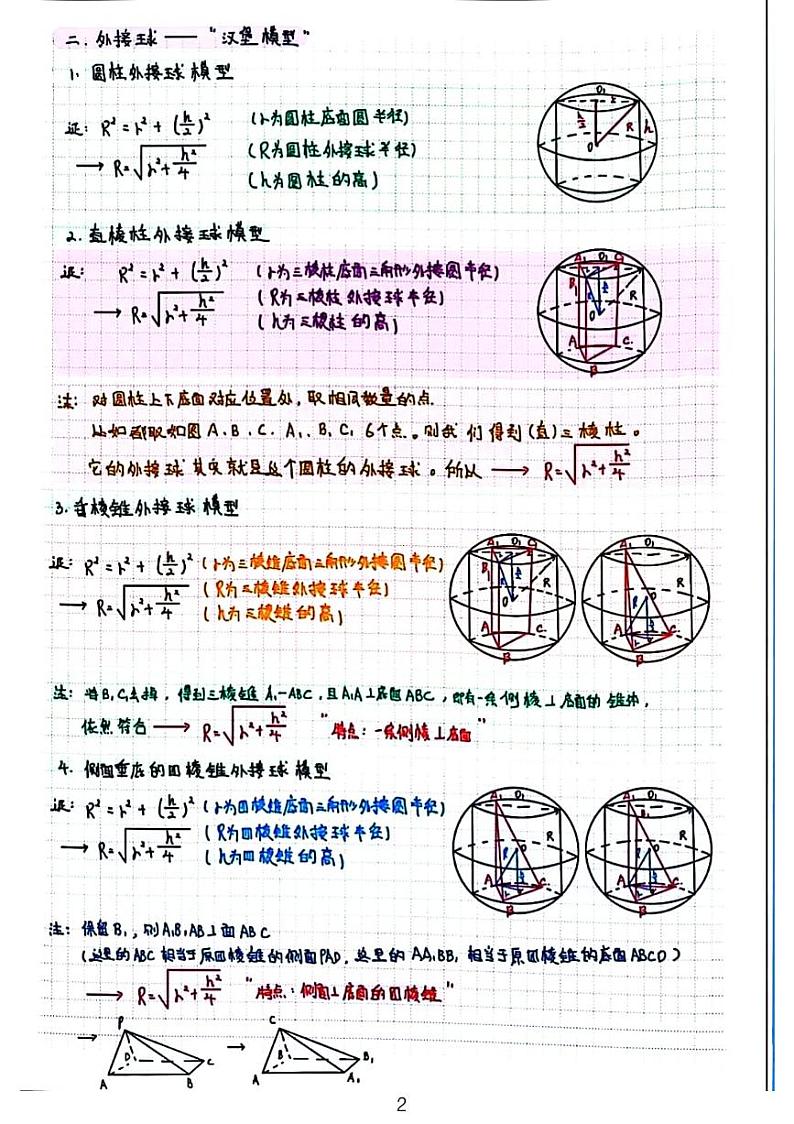 二. 外接球 —— "汉堡模型"
1. 圆柱外接球模型
证: R² = r² + (h/2)² (r为圆柱底面圆半径)
→ R=√(r²+h²/4) (R为圆柱外接球半径)
(h为圆柱的高)
2. 直棱柱外接球模型
证: R² = r² + (h/2)² (r为三棱柱底面三角形外接圆半径)
→ R=√(r²+h²/4) (R为三棱柱外接球半径)
(h为三棱柱的高)
注: 对圆柱上下底面对应位置处, 取相同数量的点.
比如都取如图A、B、C、A₁、B₁、C₁ 6个点。则我们得到(直)三棱柱。
它的外接球其实就是这个圆柱的外接球。所以 → R=√(r²+h²/4)
3. 含棱锥外接球模型
证: R² = r² + (h/2)² (r为三棱锥底面三角形外接圆半径)
→ R=√(r²+h²/4) (R为三棱锥外接球半径)
(h为三棱锥的高)
注: 将B₁C₁去掉, 得到三棱锥A₁-ABC, 且A₁A⊥底面ABC, 即有一条侧棱⊥底面的锥体,
依然符合 → R=√(r²+h²/4) "特点: 一条侧棱⊥底面"
4. 侧面垂底的四棱锥外接球模型
证: R² = r² + (h/2)² (r为四棱锥底面三角形外接圆半径)
→ R=√(r²+h²/4) (R为四棱锥外接球半径)
(h为四棱锥的高)
注: 保留B₁, 则A₁B₁AB⊥面ABC
(这里的ABC相当于原四棱锥的侧面PAD, 这里的AA₁BB₁相当于原四棱锥的底面ABCD)
→ R=√(r²+h²/4) "特点: 侧面⊥底面的四棱锥"
→ P A B C D → C A B A₁ B₁
2